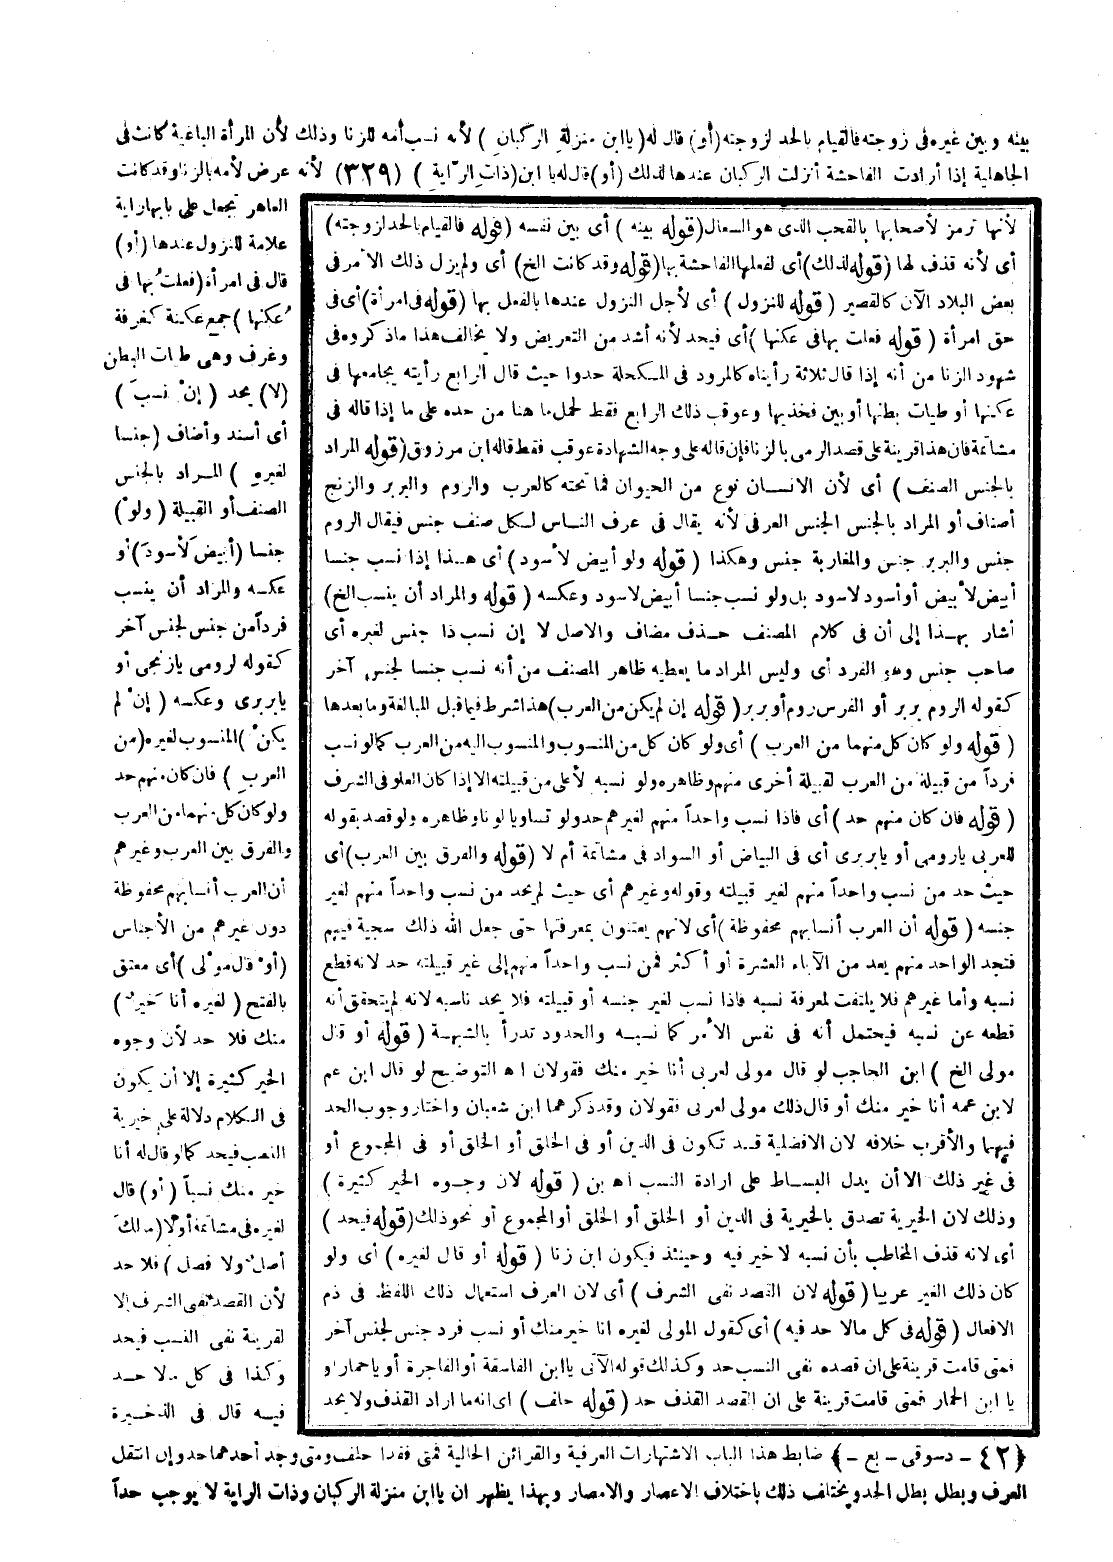 بينه وبين غيره فى زوجته فالقيام بالحد لزوجته (أو) قال له (يا ابن منزلةِ الركبانِ ) لأنه نسب أمه للزنا وذلك لأن المرأة الباغية كانت فى
الجاهلية إذا أرادت الفاحشة أنزلت الركبان عندها لذلك (أو) قال له يا ابن (ذاتِ الرّايةِ ) (٣٢٩) لأنه عرض لأمه بالزنا وقد كانت
العاهر تجعل على بابها راية
علامة للنزول عندها (أو)
قال فى امرأة (فعلتُ بها فى
عُكنها ) جمع عكنة كغرفة
وغرف وهى طيات البطن
(لا) يحد ( إنْ نسبَ )
أى أسند وأضاف (جنسا
لغيرهِ ) المراد بالجنس
الصنف أو القبيلة ( ولوْ )
جنسا (أبيضَ لأسودَ) أو
عكسه والمراد أن ينسب
فرداً من جنس لجنس آخر
كقوله لرومى يا زنجى أو
يا بربرى وعكسه ( إنْ لم
يكنْ ) المنسوب لغيره (من
العربِ ) فان كان منهم حد
ولو كان كل منهما من العرب
والفرق بين العرب وغيرهم
أن العرب أنسابهم محفوظة
دون غيرهم من الأجناس
(أو قال مولى ) أى معتق
بالفتح ( لغيره أنا خيرٌ )
منك فلا حد لأن وجوه
الخير كثيرة إلا أن يكون
فى الكلام دلالة على خيرية
النسب فيحد كما لو قال له أنا
خير منك نسباً ( أو) قال
لغيره فى مشاتمة أو لا (مالكَ
أصلٌ ولا فصل ) فلا حد
لأن القصد نفى الشرف إلا
لقرينة نفى النسب فيحد
وكذا فى كل مالا حد
فيه قال فى الذخيرة
لأنها ترمز لأصحابها بالقحب الذى هو السعال (قوله بينه ) أى بين نفسه (قوله فالقيام بالحد لزوجته)
أى لأنه قذف لها (قوله لذلك) أى لفعلها الفاحشة بها (قوله وقد كانت الخ) أى ولم يزل ذلك الأمر فى
بعض البلاد الآن كالقصير ( قوله للنزول ) أى لأجل النزول عندها بالفعل بها (قوله فى امرأة) أى فى
حق امرأة ( قوله فعلت بها فى عكنها ) أى فيحد لأنه أشد من التعريض ولا يخالف هذا ماذكروه فى
شهود الزنا من أنه إذا قال ثلاثة رأيناه كالمرود فى المكحلة حدوا حيث قال الرابع رأيته يجامعها فى
عكنها أو طيات بطنها أو بين فخذيها وعوقب ذلك الرابع فقط لحمل ما هنا من حده على ما إذا قاله فى
مشاتمة فان هذا قرينة على قصد الرمى بالزنا فإن قاله على وجه الشهادة عوقب فقط قاله ابن مرزوق (قوله المراد
بالجنس الصنف ) أى لأن الانسان نوع من الحيوان فما تحته كالعرب والروم والبربر والزنج
أصناف أو المراد بالجنس الجنس العرفى لأنه يقال فى عرف الناس لكل صنف جنس فيقال الروم
جنس والبربر جنس والمغاربة جنس وهكذا ( قوله ولو أبيض لأسود ) أى هذا إذا نسب جنسا
أبيض لأبيض أو أسود لاسود بل ولو نسب جنسا أبيض لاسود وعكسه ( قوله والمراد أن ينسب الخ)
أشار بهذا إلى أن فى كلام المصنف حذف مضاف والاصل لا إن نسب ذا جنس لغيره أى
صاحب جنس وهو الفرد أى وليس المراد ما يعطيه ظاهر المصنف من أنه نسب جنسا لجنس آخر
كقوله الروم بربر أو الفرس روم أو بربر ( قوله إن لم يكن من العرب) هذا شرط فيما قبل المبالغة وما بعدها
( قوله ولو كان كل منهما من العرب ) أى ولو كان كل من المنسوب والمنسوب اليه من العرب كما لو نسب
فرداً من قبيلة من العرب لقبيلة أخرى منهم وظاهره ولو نسبه لأعلى من قبيلته الا إذا كان العلو فى الشرف
( قوله فان كان منهم حد ) أى فاذا نسب واحداً منهم لغيرهم حد ولو تساويا لونا وظاهره ولو قصد بقوله
للعربى يا رومى أو يا بربرى أى فى البياض أو السواد فى مشاتمة أم لا (قوله والفرق بين العرب) أى
حيث حد من نسب واحداً منهم لغير قبيلته وقوله وغيرهم أى حيث لم يحد من نسب واحداً منهم لغير
جنسه ( قوله أن العرب أنسابهم محفوظة ) أى لانهم يعتنون بمعرفتها حتى جعل الله ذلك سجية فيهم
فتجد الواحد منهم يعد من الآباء العشرة أو أكثر فمن نسب واحداً منهم إلى غير قبيلته حد لانه قطع
نسبه وأما غيرهم فلا يلتفت لمعرفة نسبه فاذا نسب لغير جنسه أو قبيلته فلا يحد ناسبه لانه لم يتحقق أنه
قطعه عن نسبه فيحتمل أنه فى نفس الأمر كما نسبه والحدود تدرأ بالشبهة ( قوله أو قال
مولى الخ ) ابن الحاجب لو قال مولى لعربى أنا خير منك فقولان اه التوضيح لو قال ابن عم
لابن عمه أنا خير منك أو قال ذلك مولى لعربى فقولان وقد ذكرهما ابن شعبان واختار وجوب الحد
فيهما والأقرب خلافه لان الافضلية قد تكون فى الدين أو فى الخلق أو الخلق أو فى المجموع أو
فى غير ذلك الا أن يدل البساط على ارادة النسب اه بن ( قوله لان وجوه الخير كثيرة )
وذلك لان الخيرية تصدق بالخيرية فى الدين أو الخلق أو الخلق أو المجموع أو نحو ذلك (قوله فيحد )
أى لانه قذف المخاطب بأن نسبه لا خير فيه وحينئذ فيكون ابن زنا ( قوله أو قال لغيره ) أى ولو
كان ذلك الغير عربيا ( قوله لان القصد نفى الشرف ) أى لان العرف استعمال ذلك اللفظ فى ذم
الافعال ( قوله فى كل مالا حد فيه ) أى كقول المولى لغيره انا خير منك أو نسب فرد جنس لجنس آخر
فمتى قامت قرينة على ان قصده نفى النسب حد وكذلك قوله الآتى يا ابن الفاسقة أو الفاجرة أو يا حمار أو
يا ابن الحمار فمتى قامت قرينة على ان القصد القذف حد ( قوله حلف ) اى انه ما اراد القذف ولا يحد
﴿٤٢ - دسوقى - بع -﴾ ضابط هذا الباب الاشتهارات العرفية والقرائن الحالية فمتى فقدا حلف ومتى وجد أحدهما حد وإن انتقل
العرف وبطل بطل الحد ويختلف ذلك باختلاف الاعصار والامصار وبهذا يظهر ان يا ابن منزلة الركبان وذات الراية لا يوجب حداً